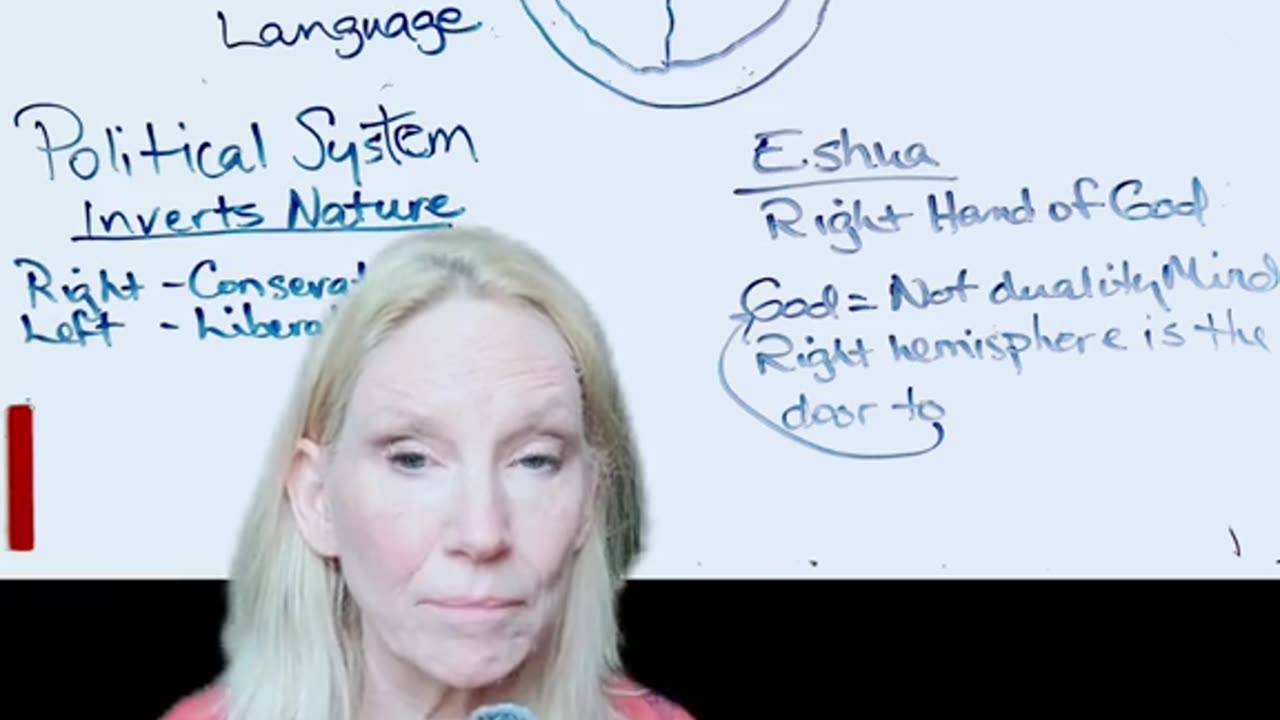 Language
Political System
Inverts Nature
Right - Conserat
Left - Libera
Eshua
Right Hand of God
God = Not duality Mind
Right hemisphere is the
door to